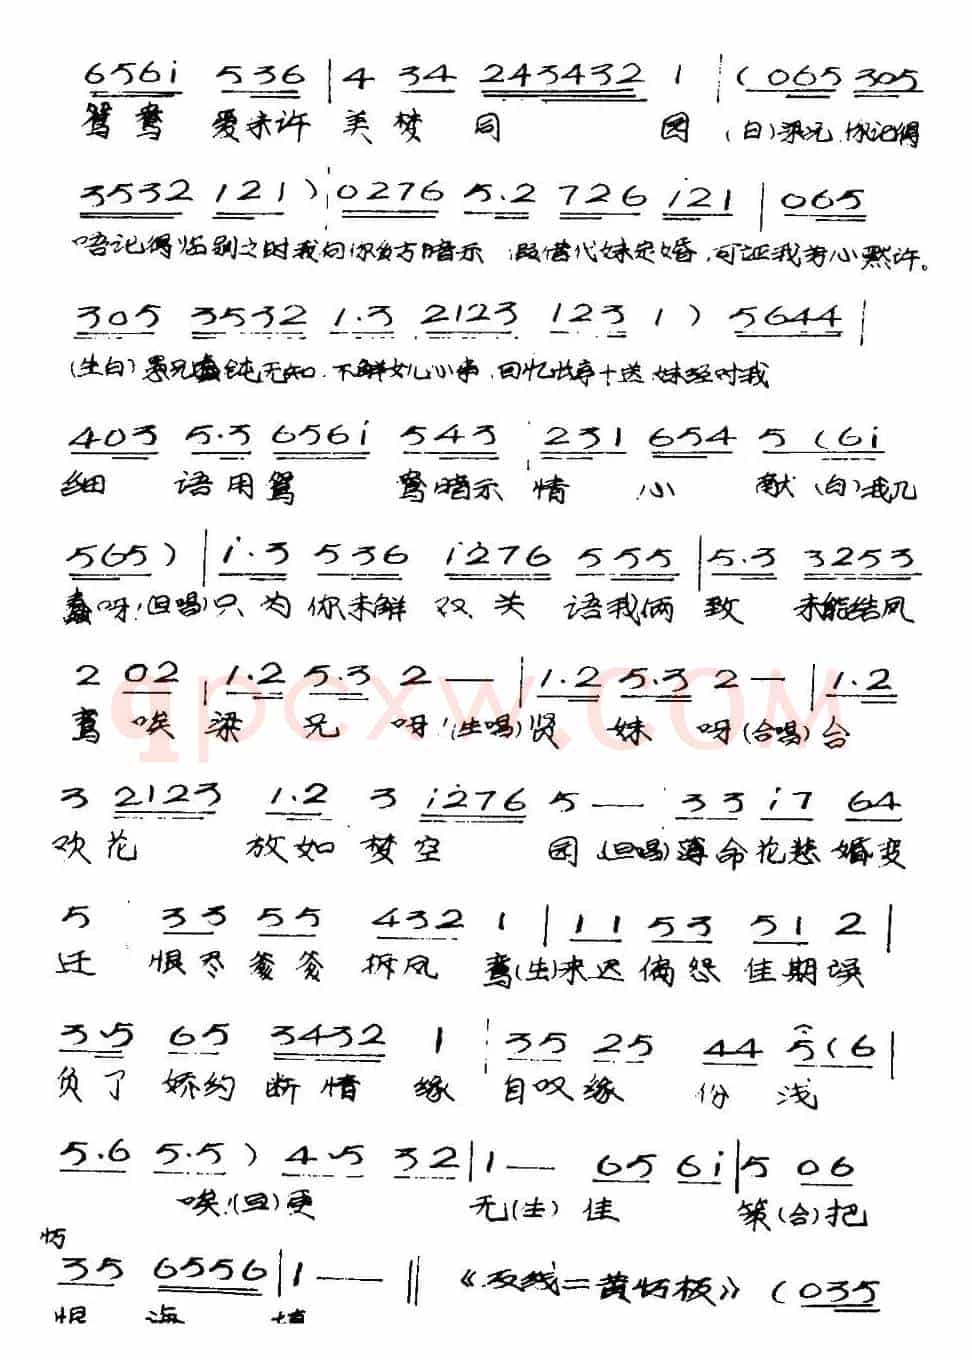 6561̇ 536 | 4 34 243432 1 | (065 305
鸳鸯 爱未许 美梦 同 圆 (白)梁兄,你记得
3532 121) 0276 5.2 726 1̇21 | 065
唔记得临别之时我向你多方暗示 假借代妹定婚,可证我芳心默许。
305 3532 1.3 2123 123 1) 5644 |
(生白)愚兄蠢钝无知,不解女儿心事,回忆长亭十送,妹经对我
403 5.3 6561̇ 543 231 654 5 (61̇
细 语用鸳 鸯暗示情 心 献 (白)我几
565) | 1̇.3 536 1̇276 555 | 5.3 3253
蠢呀!(旦唱)只为你未解 双 关 语我俩 致 未能结凤
2 02 1.2 5.3 2 — | 1.2 5.3 2 — | 1.2
鸾 唉 梁 兄 呀!(生唱)贤 妹 呀(合唱)合
qpcxw.com
3 2123 1.2 3 1̇276 5 — 33 1̇7 64
欢花 放如梦空 园 (旦唱)薄命花悲婚变
5 33 55 432 1 | 11 53 51 2 |
迁 恨尽爹爹拆凤 鸾(生)来迟倘怨佳期误
35 65 3432 1 35 25 44 5 (6 |
负了娇约断情缘 自叹缘 份 浅
5.6 5.5) 45 32 | 1 — 65 61̇ | 5 06
唉!(旦)更 无(生)佳 策(合)把
35 6556 | 1 — — ‖ 《反线二黄板》 (035
恨 海 填